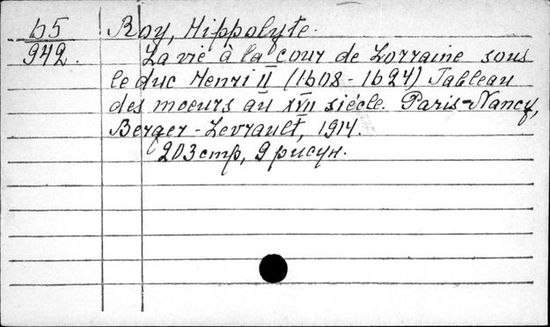 b5 Roy, Hippolyte.
942. La vie à la cour de Lorraine sous
le duc Henri II (1608-1624) Tableau
des moeurs au XVII siécle. Paris-Nancy,
Berger-Levrault, 1914.
203 стр, 9 рисун.